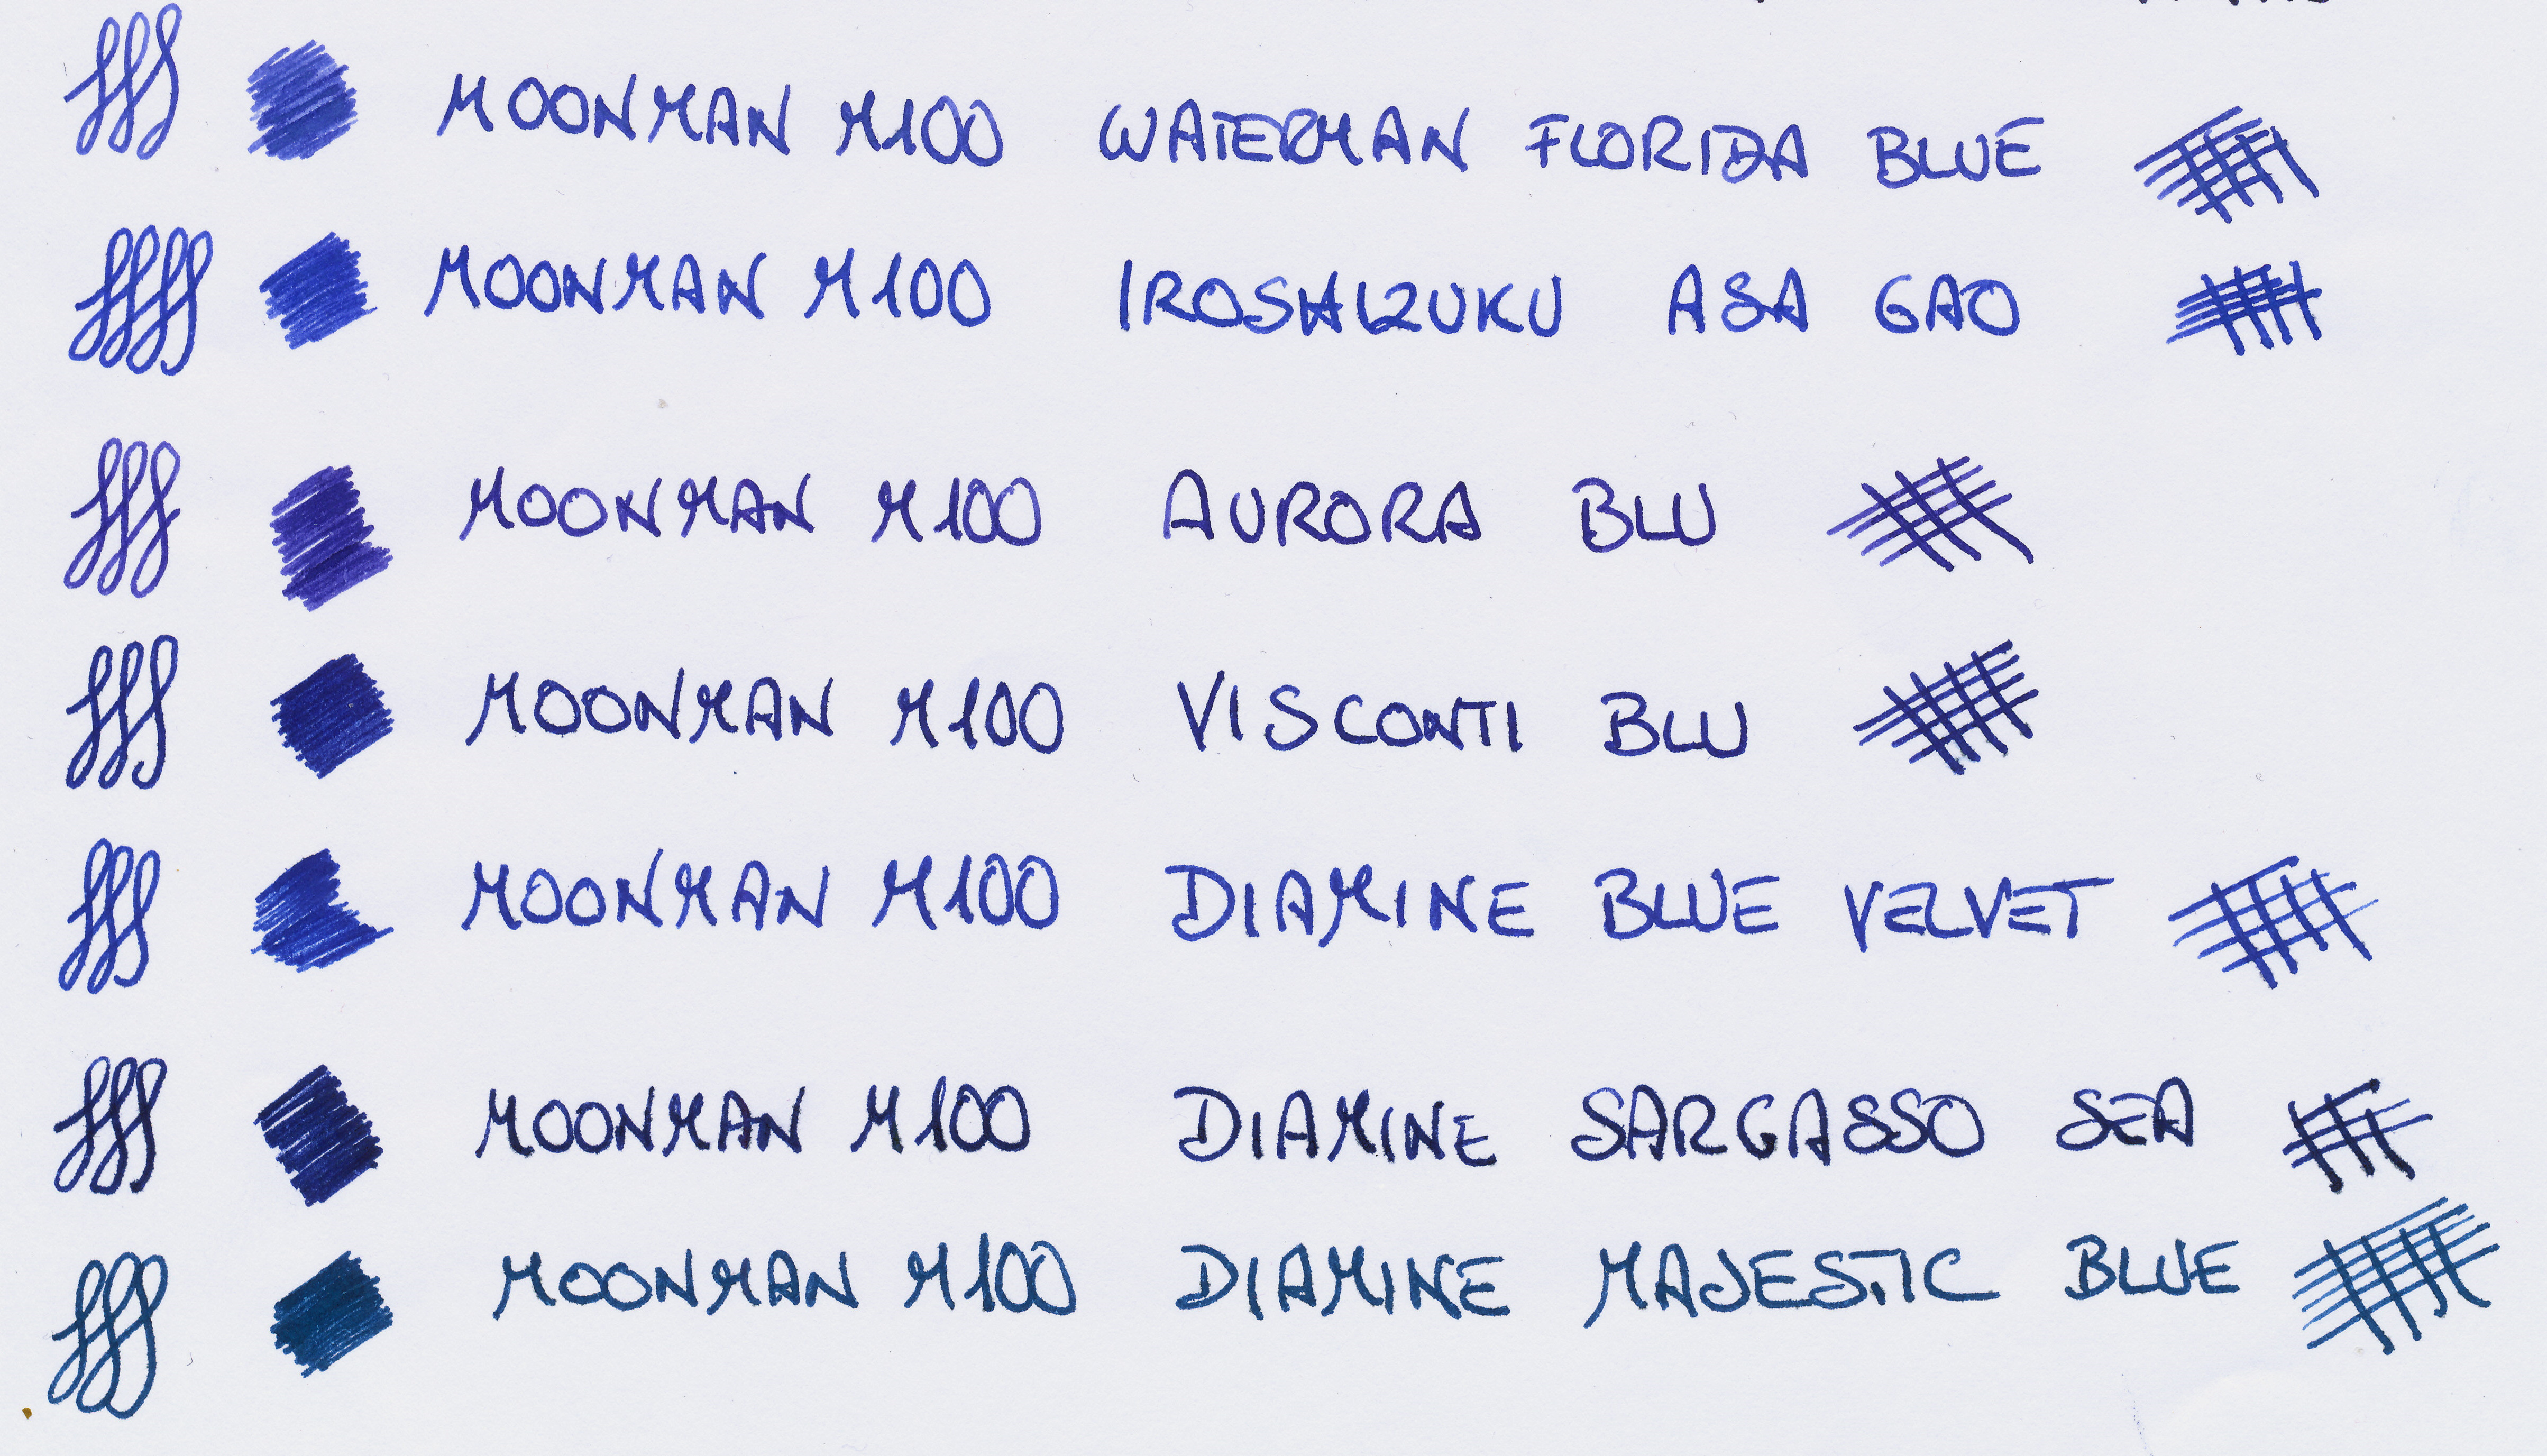 MOONMAN M100 WATERMAN FLORIDA BLUE
MOONMAN M100 IROSHIZUKU ASA GAO
MOONMAN M100 AURORA BLU
MOONMAN M100 VISCONTI BLU
MOONMAN M100 DIAMINE BLUE VELVET
MOONMAN M100 DIAMINE SARGASSO SEA
MOONMAN M100 DIAMINE MAJESTIC BLUE